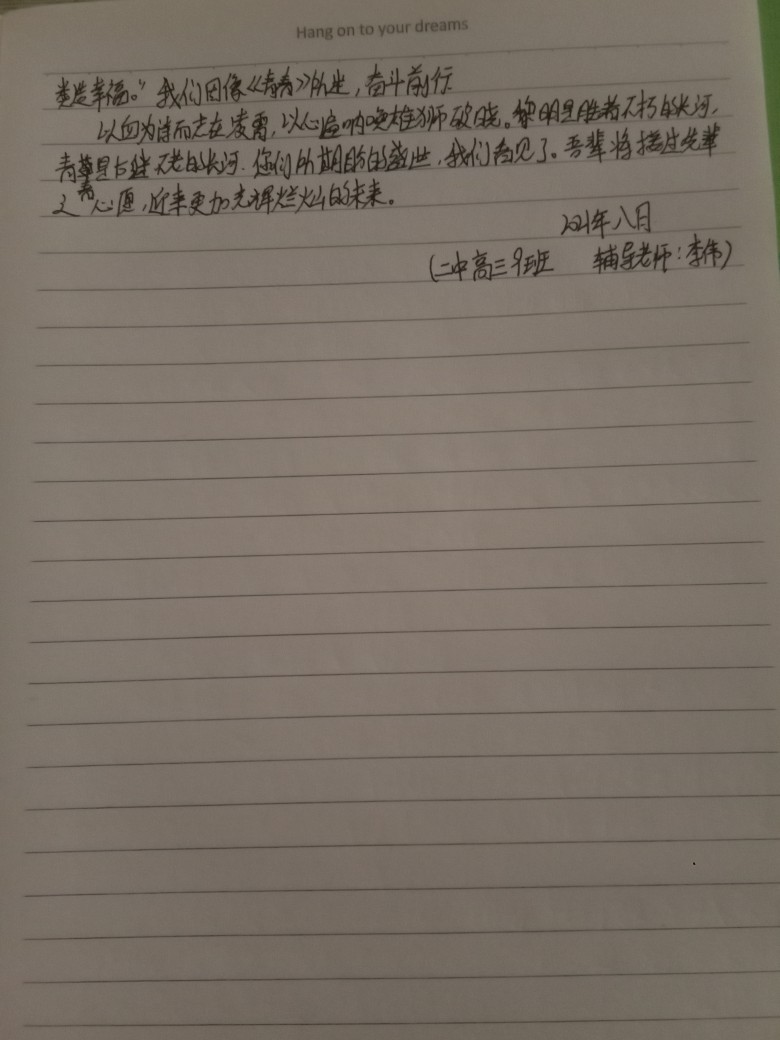 Hang on to your dreams
类造幸福。”我们因像《青春》所述，奋斗前行
以血为诗而志在凌霄，以心血呐唤雄狮破晓。黎明是胜者不朽的长河，
青春是后继不老的长河.您们所期盼的盛世，我们看见了。吾辈将接过先辈
之心愿，近来更加光辉灿烂的未来。
2021年八月
（二中高三9班 辅导老师：李伟）